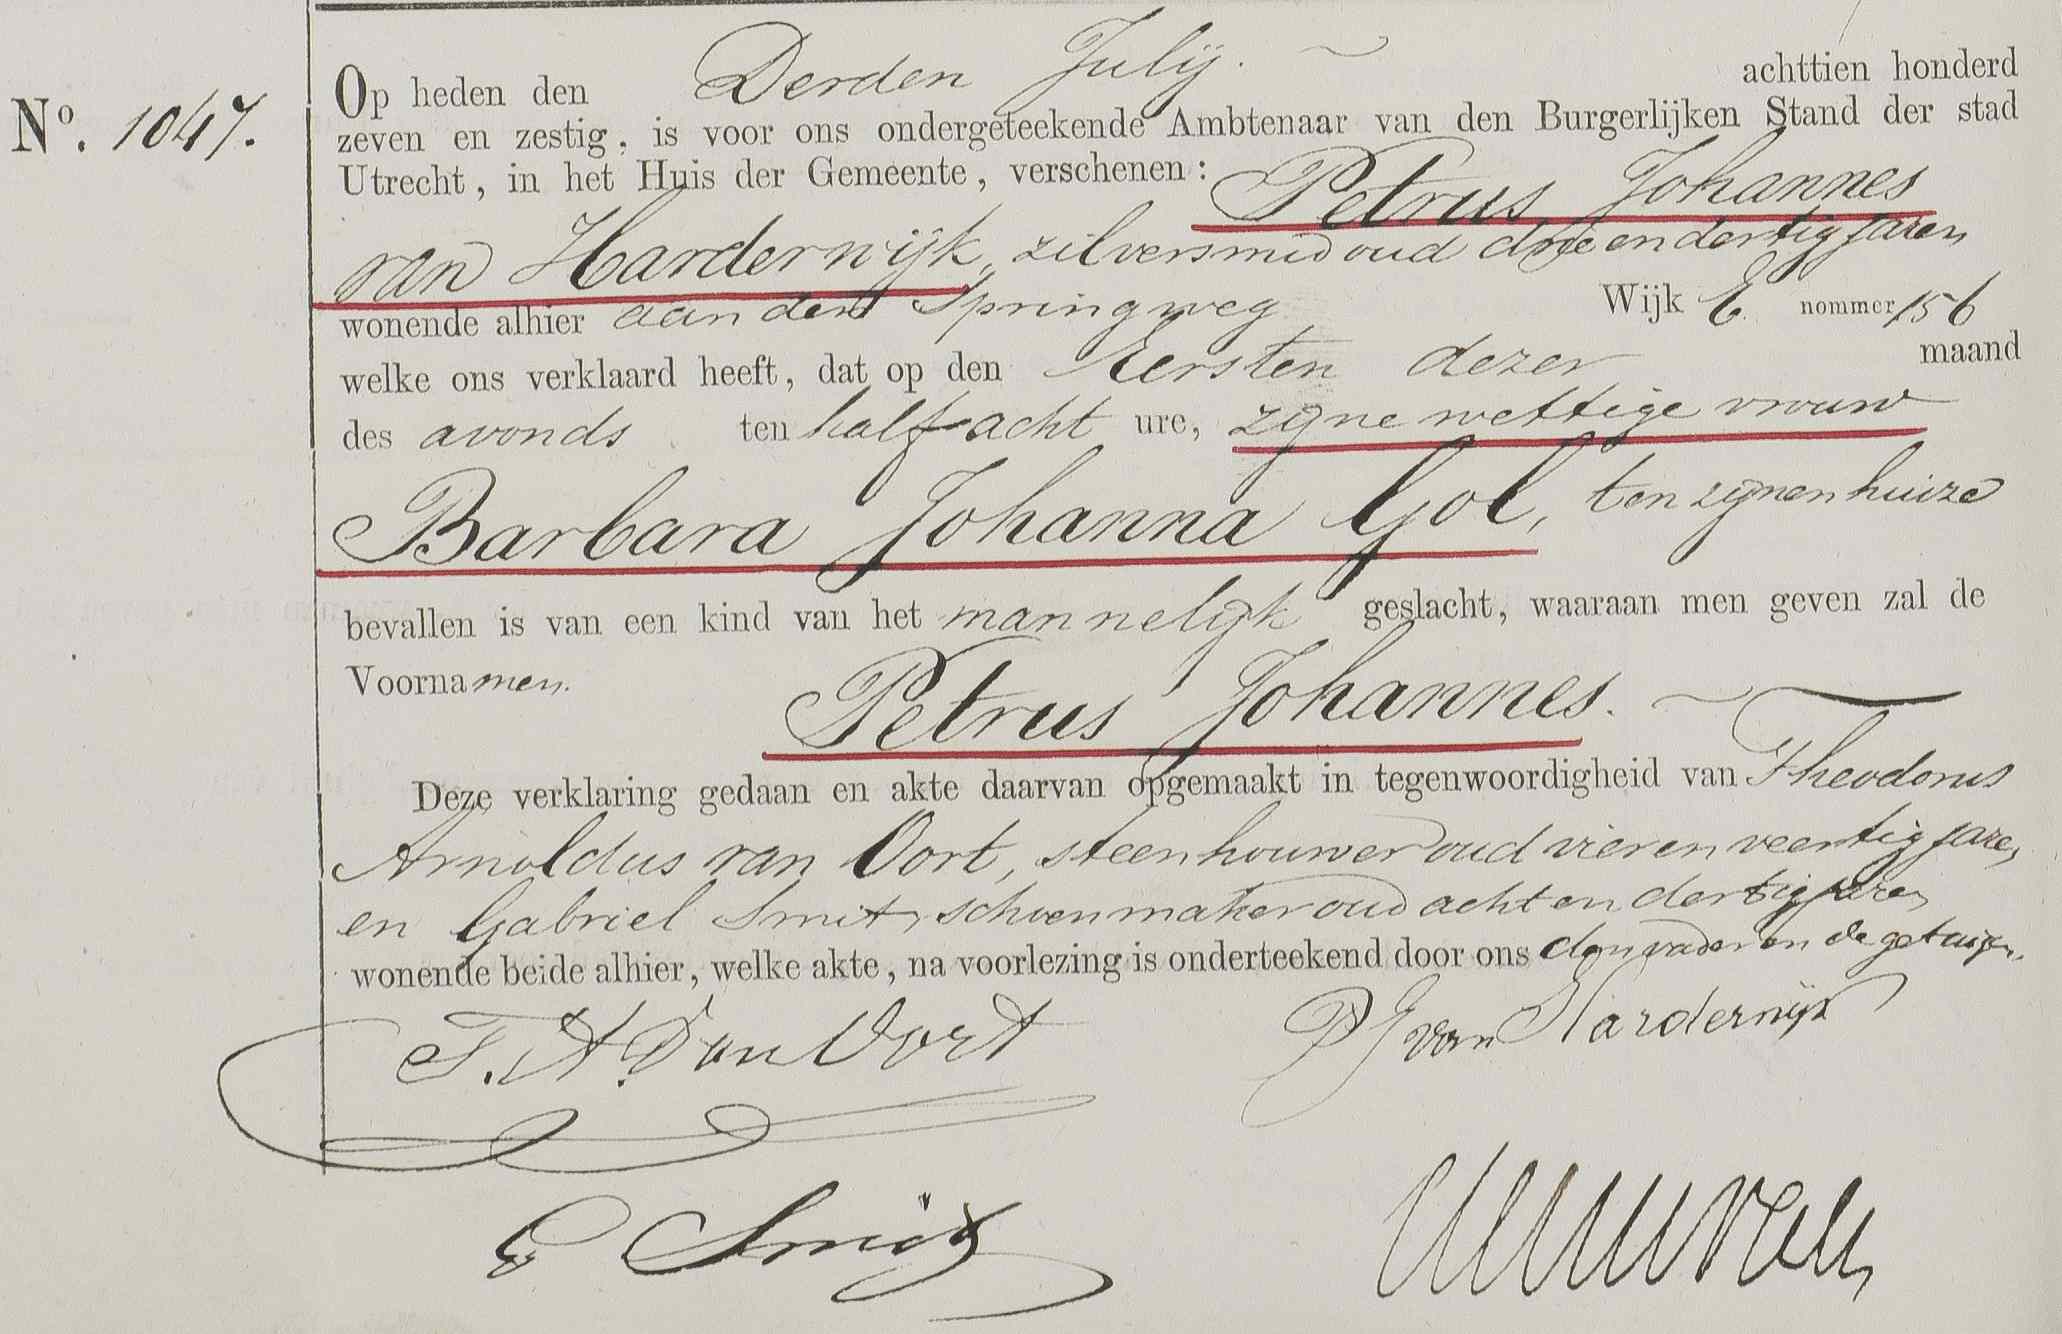 Nº. 1047.
Op heden den Derden Julij. achttien honderd
zeven en zestig, is voor ons ondergeteekende Ambtenaar van den Burgerlijken Stand der stad
Utrecht, in het Huis der Gemeente, verschenen: Petrus Johannes
van Harderwijk, zilversmid oud drie en dertig jaren
wonende alhier aan den Springweg Wijk E. nommer 156
welke ons verklaard heeft, dat op den Eersten dezer maand
des avonds ten half acht ure, zijne wettige vrouw
Barbara Johanna Gol, ten zijnen huize
bevallen is van een kind van het mannelijk geslacht, waaraan men geven zal de
Voornamen.
Petrus Johannes.
Deze verklaring gedaan en akte daarvan opgemaakt in tegenwoordigheid van Theodorus
Arnoldus van Oort, steenhouwer oud vier en veertig jaren,
en Gabriel Smit, schoenmaker oud acht en dertig jaren
wonende beide alhier, welke akte, na voorlezing is onderteekend door ons den vader en de getuigen.
T. A. Van Oort P J van Harderwijk
G Smit